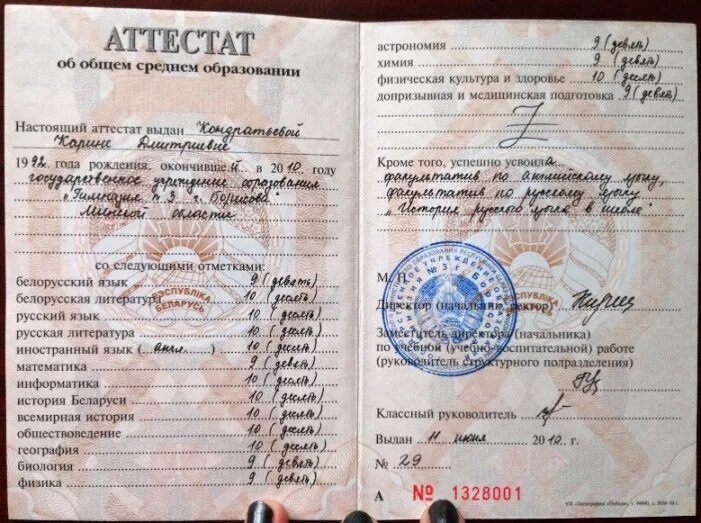 АТТЕСТАТ
об общем среднем образовании
Настоящий аттестат выдан Кондратьевой
Карине Дмитриевне
1992 года рождения, окончившей в 2010 году
государственное учреждение образования
"Гимназия № 3 г. Борисова"
Минской области
со следующими отметками:
белорусский язык 9 (девять)
белорусская литература 10 (десять)
русский язык 10 (десять)
русская литература 10 (десять)
иностранный язык (англ.) 10 (десять)
математика 9 (девять)
информатика 10 (десять)
история Беларуси 10 (десять)
всемирная история 10 (десять)
обществоведение 10 (десять)
география 10 (десять)
биология 9 (девять)
физика 9 (девять)
РЭСПУБЛІКА
БЕЛАРУСЬ
астрономия 9 (девять)
химия 9 (девять)
физическая культура и здоровье 10 (десять)
допризывная и медицинская подготовка 9 (девять)
Кроме того, успешно усвоила
факультатив по английскому языку,
факультатив по русскому языку
"История русского языка в школе"
М. П.
Директор (начальник, ректор)
Заместитель директора (начальника)
по учебной (учебно-воспитательной) работе
(руководитель структурного подразделения)
Классный руководитель
Выдан 11 июня 2010 г.
№ 29
А № 1328001